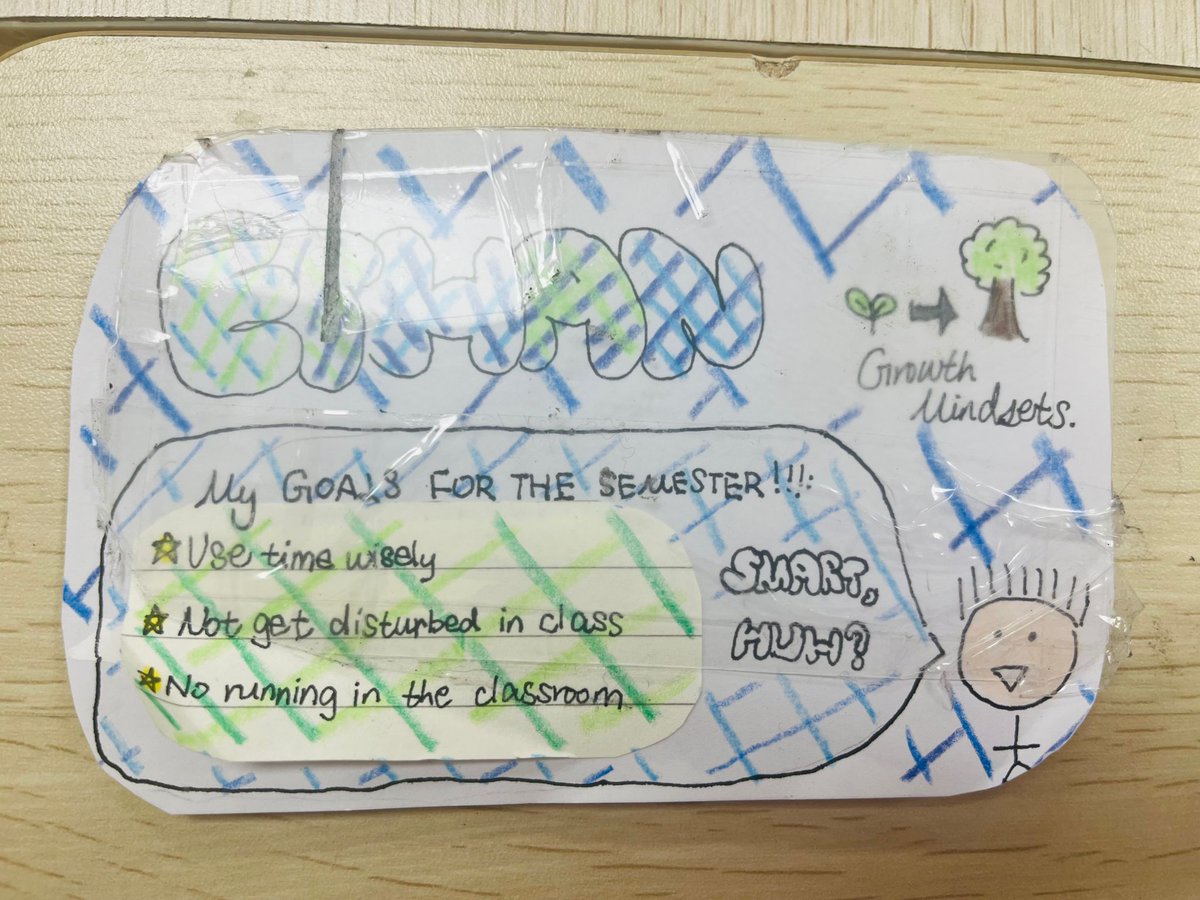 ETHAN
Growth
Mindsets.
My GOALS FOR THE SEMESTER!!!:
Use time wisely
Not get disturbed in class
No running in the classroom.
SMART,
HUH?